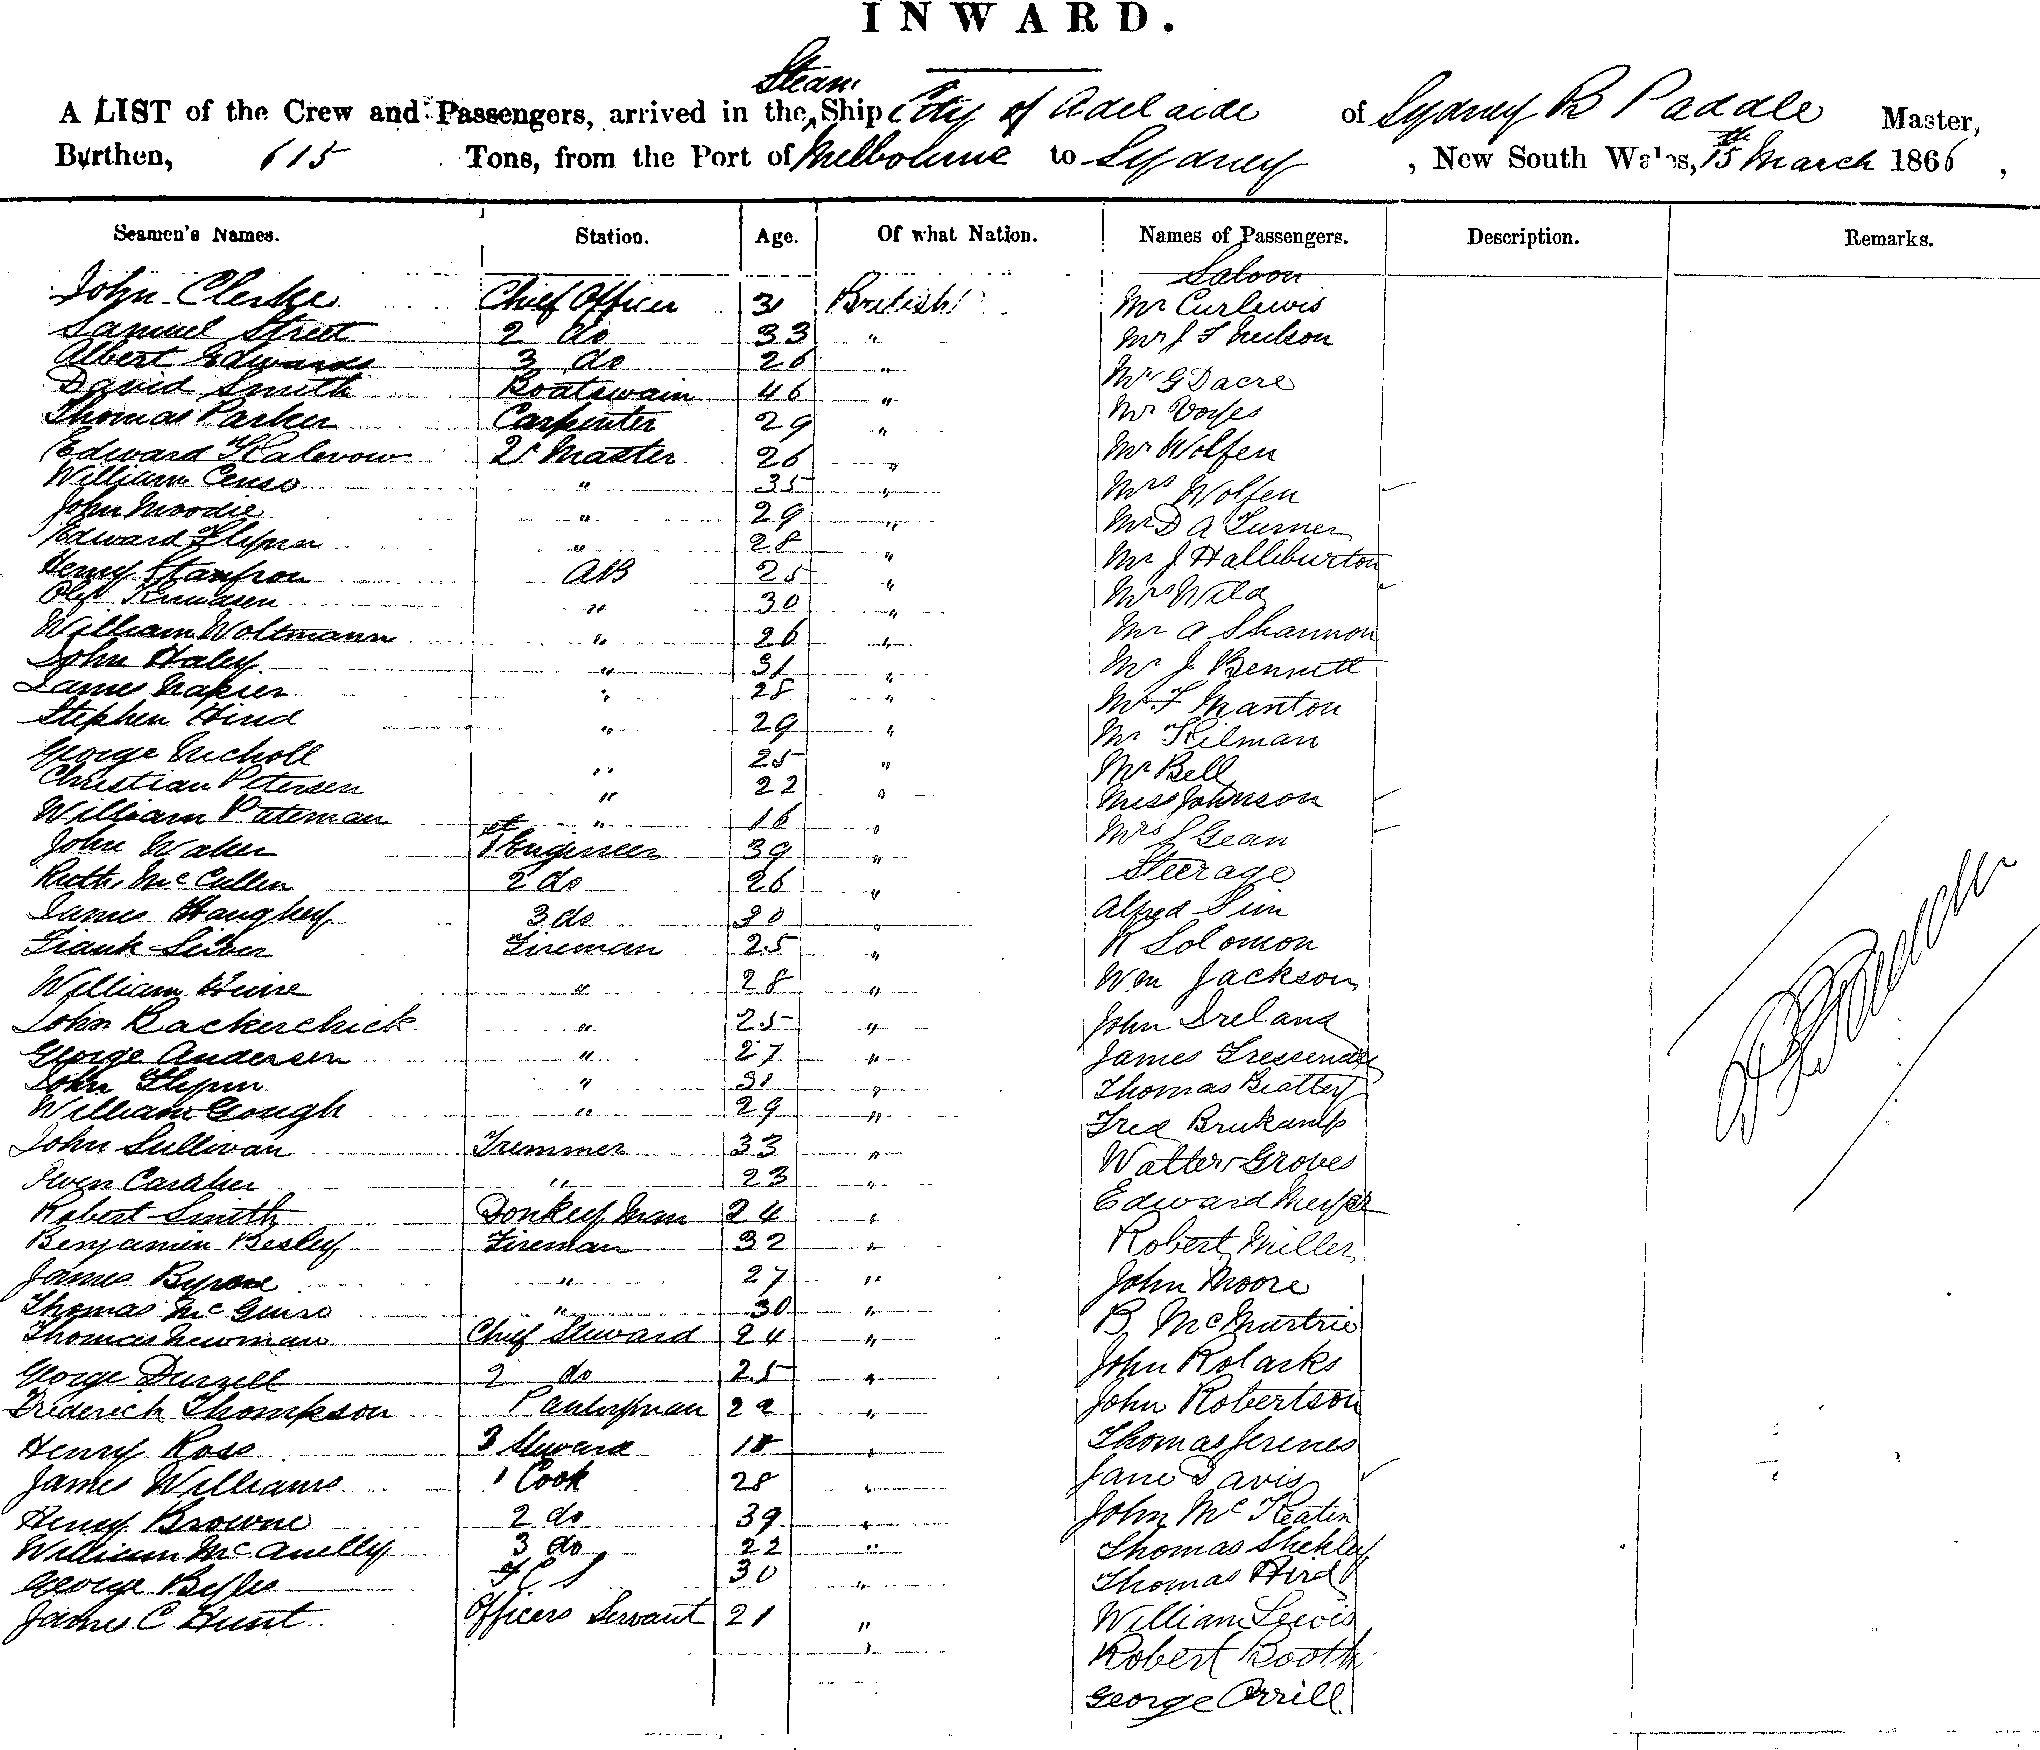 INWARD.
Steam
A LIST of the Crew and Passengers, arrived in the Ship City of Adelaide of Sydney R Paddle Master,
Burthen, 615 Tons, from the Port of Melbourne to Sydney, New South Wales, 15th March 1866,
Seamen's Names. Station. Age. Of what Nation. Names of Passengers. Description. Remarks.
Saloon
John Clerke Chief Officer 31 British Mr Curlewis
Samuel Street 2 do 33 " Mr J T Neilson
Albert Edwards 3 do 26 " Mr G Dacre
David Smith Boatswain 46 " Mr
Thomas Parker Carpenter 29 " Mr Wolfen
Edward 2r Master 26 " Mrs Wolfen
William " 35 " Mr D A Turner
John Moodie " 29 " Mr J Halliburton
Edward Flynn " 28 " Mrs Wild
Henry AB 25 " Mr A Shannon
" 30 " Mr J Bennett
William Woltmann " 26 " Mr F Manton
John Haley " 31 " Mr Kilman
James Napier " 28 " Mr Bell
Stephen Hind " 29 " Miss Johnson
George Nicholl " 25 " Mrs
Christian Petersen " 22 " Steerage
William Pateman " 16 " Alfred
John 1st Engineer 39 " R Solomon
McCullen 2 do 26 " Wm Jackson
James Haughey 3 do 30 " John Ireland
Frank Fireman 25 " James
William " 28 " Thomas Beattey
John Backerchick " 25 " Fred Brukamp
George Andersen " 27 " Walter Groves
John Flynn " 31 " Edward Meyer
William Gough " 29 " Robert Miller
John Sullivan Tremmer 33 " John Moore
Owen Caraher " 23 " B McMurtrie
Robert Smith Donkey Man 24 " John Rolarks
Benjamin Besley Fireman 32 " John Robertson
James Byrne " 27 " Thomas
Thomas " 30 " Jane Davis
Thomas Newman Chief Steward 24 " John
George 2 do 25 " Thomas
Frederick Thompson Pantryman 22 " Thomas Hird
Henry Ross 3 Steward 18 " William Lewis
James Williams 1 Cook 28 " Robert Booth
Henry Browne 2 do 39 " George Orrill
William McAnelly 3 do 22 "
George Byles 30 "
James C Hunt Officers Servant 21 "